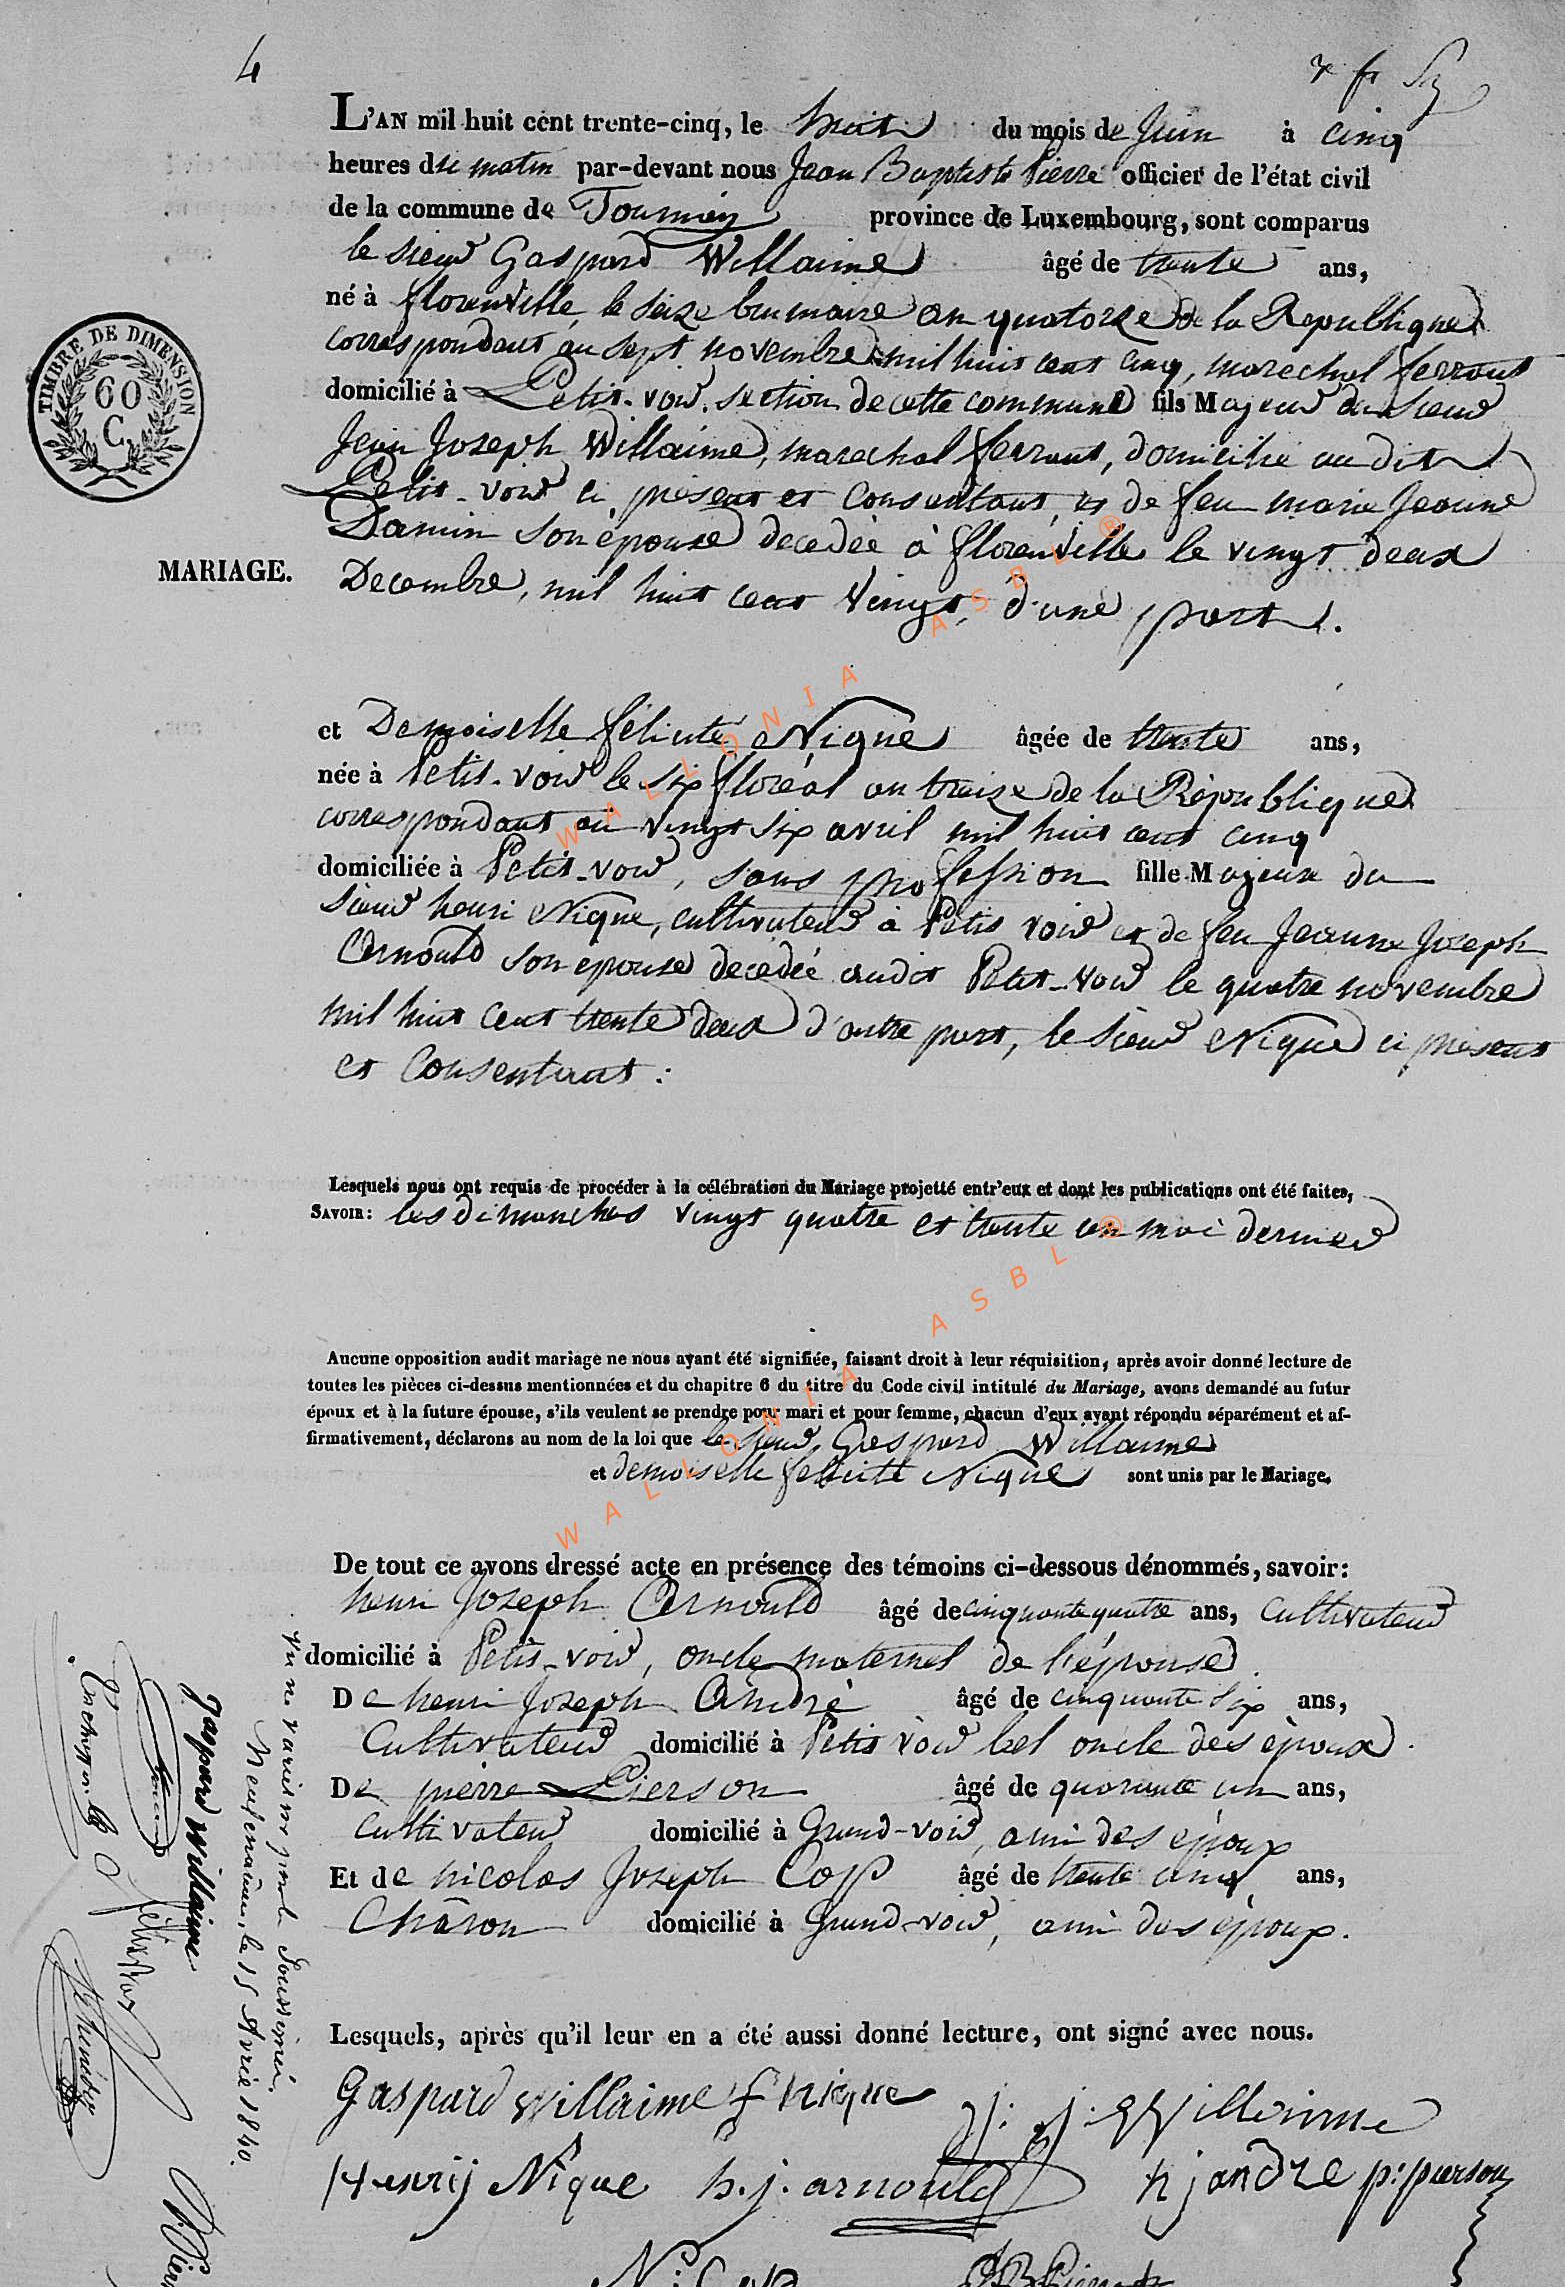 4
L'AN mil huit cent trente-cinq, le huit du mois de Juin à cinq
heures du matin par-devant nous Jean Baptiste Pierre officier de l'état civil
de la commune de Tournay province de Luxembourg, sont comparus
le sieur Gaspard Willaime âgé de trente ans,
né à florenville, le seize brumaire an quatorze de la Republique
correspondant au sept novembre mil huit cent cinq, marechal ferrant
domicilié à Petit-voir section de cette commune fils Majeur du Sieur
Jean Joseph Willaime, marechal ferrant, domicilié au dit
Petit-voir ci présent et consentant, et de feu marie Jeanne
Damin son épouse decedée à florenville le vingt deux
MARIAGE.
Decembre, mil huit cent vingt, d'une part.
et Demoiselle félicité Nique âgée de trente ans,
née à Petit-voir le six floréal an treize de la République
correspondant au vingt six avril mil huit cent cinq
domiciliée à Petit-voir, sans profession fille Majeure du
Sieur henri Nique, cultivateur à Petit voir et de feu Jeanne Joseph
Arnould son epouse decedée audit Petit-voir le quatre novembre
mil huit cent trente deux d'autre part, le sieur Nique ci présent
et consentant :
Lesquels nous ont requis de procéder à la célébration du Mariage projetté entr'eux et dont les publications ont été faites,
SAVOIR: les dimanches vingt quatre et trente un mai dernier
Aucune opposition audit mariage ne nous ayant été signifiée, faisant droit à leur réquisition, après avoir donné lecture de
toutes les pièces ci-dessus mentionnées et du chapitre 6 du titre du Code civil intitulé du Mariage, avons demandé au futur
époux et à la future épouse, s'ils veulent se prendre pour mari et pour femme, chacun d'eux ayant répondu séparément et af-
firmativement, déclarons au nom de la loi que le sieur Gaspard Willaime
et demoiselle felicité Nique sont unis par le Mariage.
De tout ce avons dressé acte en présence des témoins ci-dessous dénommés, savoir:
henri Joseph Arnould âgé de cinquante quatre ans, cultivateur
domicilié à Petit-voir, oncle maternel de l'épouse.
De henri Joseph André âgé de cinquante six ans,
Cultivateur domicilié à Petit voir bel oncle des époux.
De pierre Pierson âgé de quarante un ans,
cultivateur domicilié à Grand-voir, ami des époux
Et de nicolas Joseph Cop âgé de trente cinq ans,
Charon domicilié à Grand-voir, ami des époux.
Lesquels, après qu'il leur en a été aussi donné lecture, ont signé avec nous.
Gaspard Willaime f nique j: j: Willaime
Henrij Nique h. j. arnould h j andre p: pierson
TIMBRE DE DIMENSION
60
C.
Ne varietur par le Soussigné,
Neufchateau, le 15 Avril 1840.
Gaspard Willaime
WALLONIA ASBL ®
WALLONIA ASBL ®